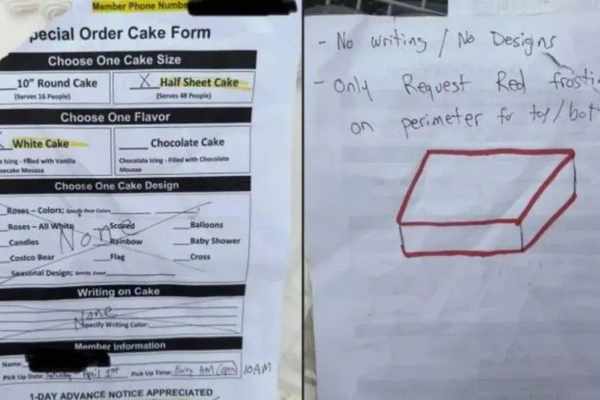 Member Phone Number
pecial Order Cake Form
Choose One Cake Size
10" Round Cake
(Serves 16 People)
X Half Sheet Cake
(Serves 48 People)
Choose One Flavor
White Cake
Icing - Filled with Vanilla
esecake Mousse
Chocolate Cake
Chocolate Icing - Filled with Chocolate
Mousse
Choose One Cake Design
Roses - Colors: Specify Rose Colors
Roses - All White
Candles
Costco Bear
Seasonal Design:
Scored
Rainbow
Flag
Balloons
Baby Shower
Cross
None
Writing on Cake
None
Specify Writing Color:
Member Information
Name:
Pick Up Date: Saturday April 1st Pick Up Time: AM (open) 10AM
1-DAY ADVANCE NOTICE APPRECIATED
- No writing / No Designs
- Only Request Red frostin
on perimeter for top/bot